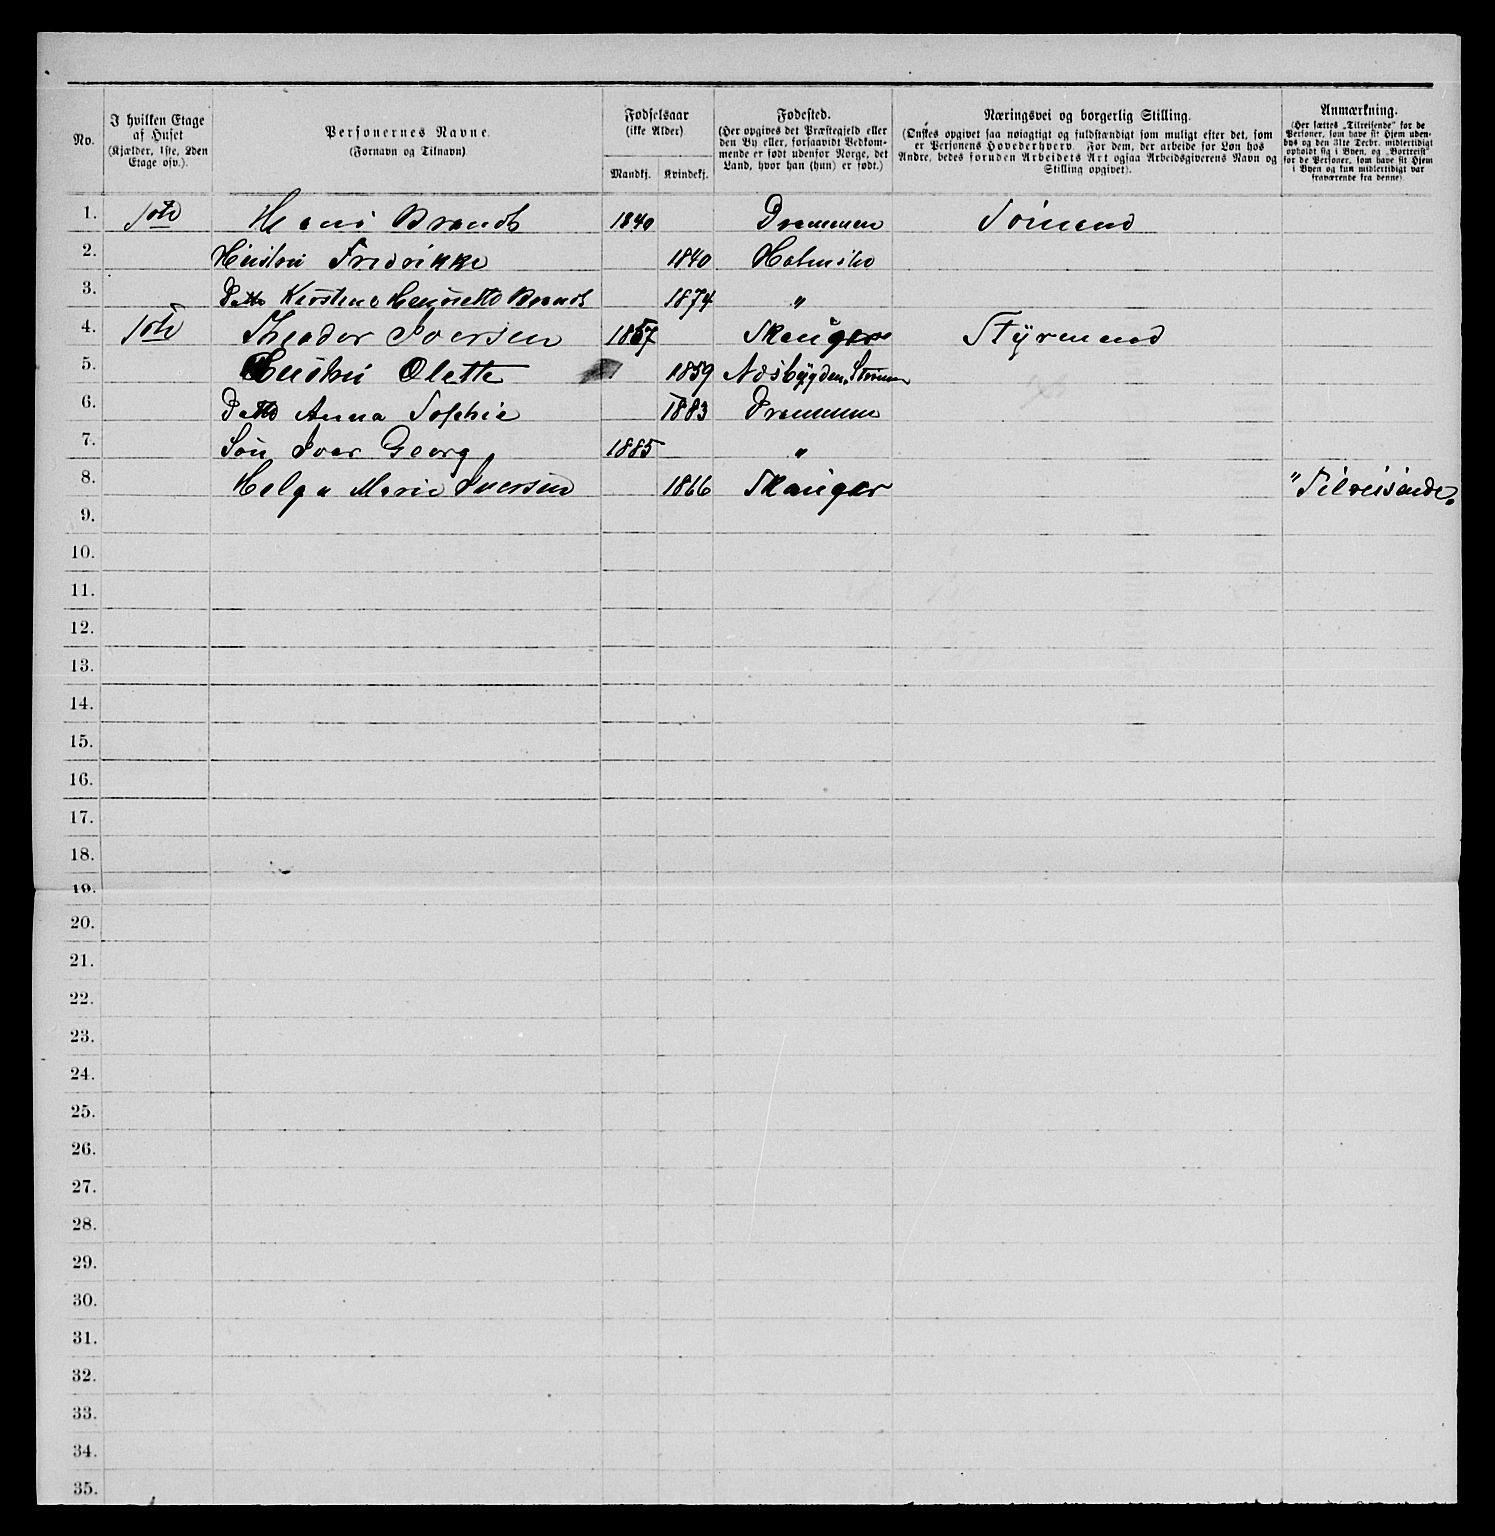 No.
I hvilken Etage af Huset (Kjælder, 1ste, 2den Etage osv.).
Personernes Navne. (Fornavn og Tilnavn)
Fødselsaar (ikke Alder)
Mandkj. Kvindekj.
Fødested. (Her opgives det Præstegjeld eller den By eller, forsaavidt Vedkommende er født udenfor Norge, det Land, hvor han (hun) er født.)
Næringsvei og borgerlig Stilling. (Ønskes opgivet saa nøiagtigt og fuldstændigt som muligt efter det, som er Personens Hovederhverv. For dem, der arbeide for Løn hos Andre, bedes foruden Arbeidets Art ogsaa Arbeidsgiverens Navn og Stilling opgivet).
Anmærkning. (Her sættes „Tilreisende" for de Personer, som have sit Hjem udenbys og den 31te Decbr. midlertidigt opholdt sig i Byen, og „Bortreist" for de Personer, som have sit Hjem i Byen og kun midlertidigt var fraværende fra denne).
1. 1ste Hans Brandt 1840 Drammen Sømand
2. Hustru Fredrikke 1840 Holmsbo
3. Datter Kirstine Henriette Brandt 1874 "
4. 1ste Theodor Iversen 1857 Skauger Styrmand
5. Hustru Olette 1859 Næsbygden, Strømm
6. Datter Anna Sophie 1883 Drammen
7. Søn Iver Georg 1885 "
8. Helga Marie Iversen 1866 Skauger "Tilreisende"
9.
10.
11.
12.
13.
14.
15.
16.
17.
18.
19.
20.
21.
22.
23.
24.
25.
26.
27.
28.
29.
30.
31.
32.
33.
34.
35.